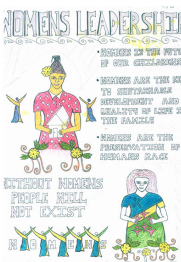 WOMENS LEADERSHIP
• WOMENS IS THE FUTURE
OF OUR CHILDRENS
• WOMENS ARE THE KEY
TO SUSTAINABLE
DEVELOPMENT AND
QUALITY OF LIFE IN
THE FAMILY
• WOMENS ARE THE
PRESERVATION OF
HUMANS RACE
WITHOUT WOMENS
PEOPLE WILL
NOT EXIST
WOMENS